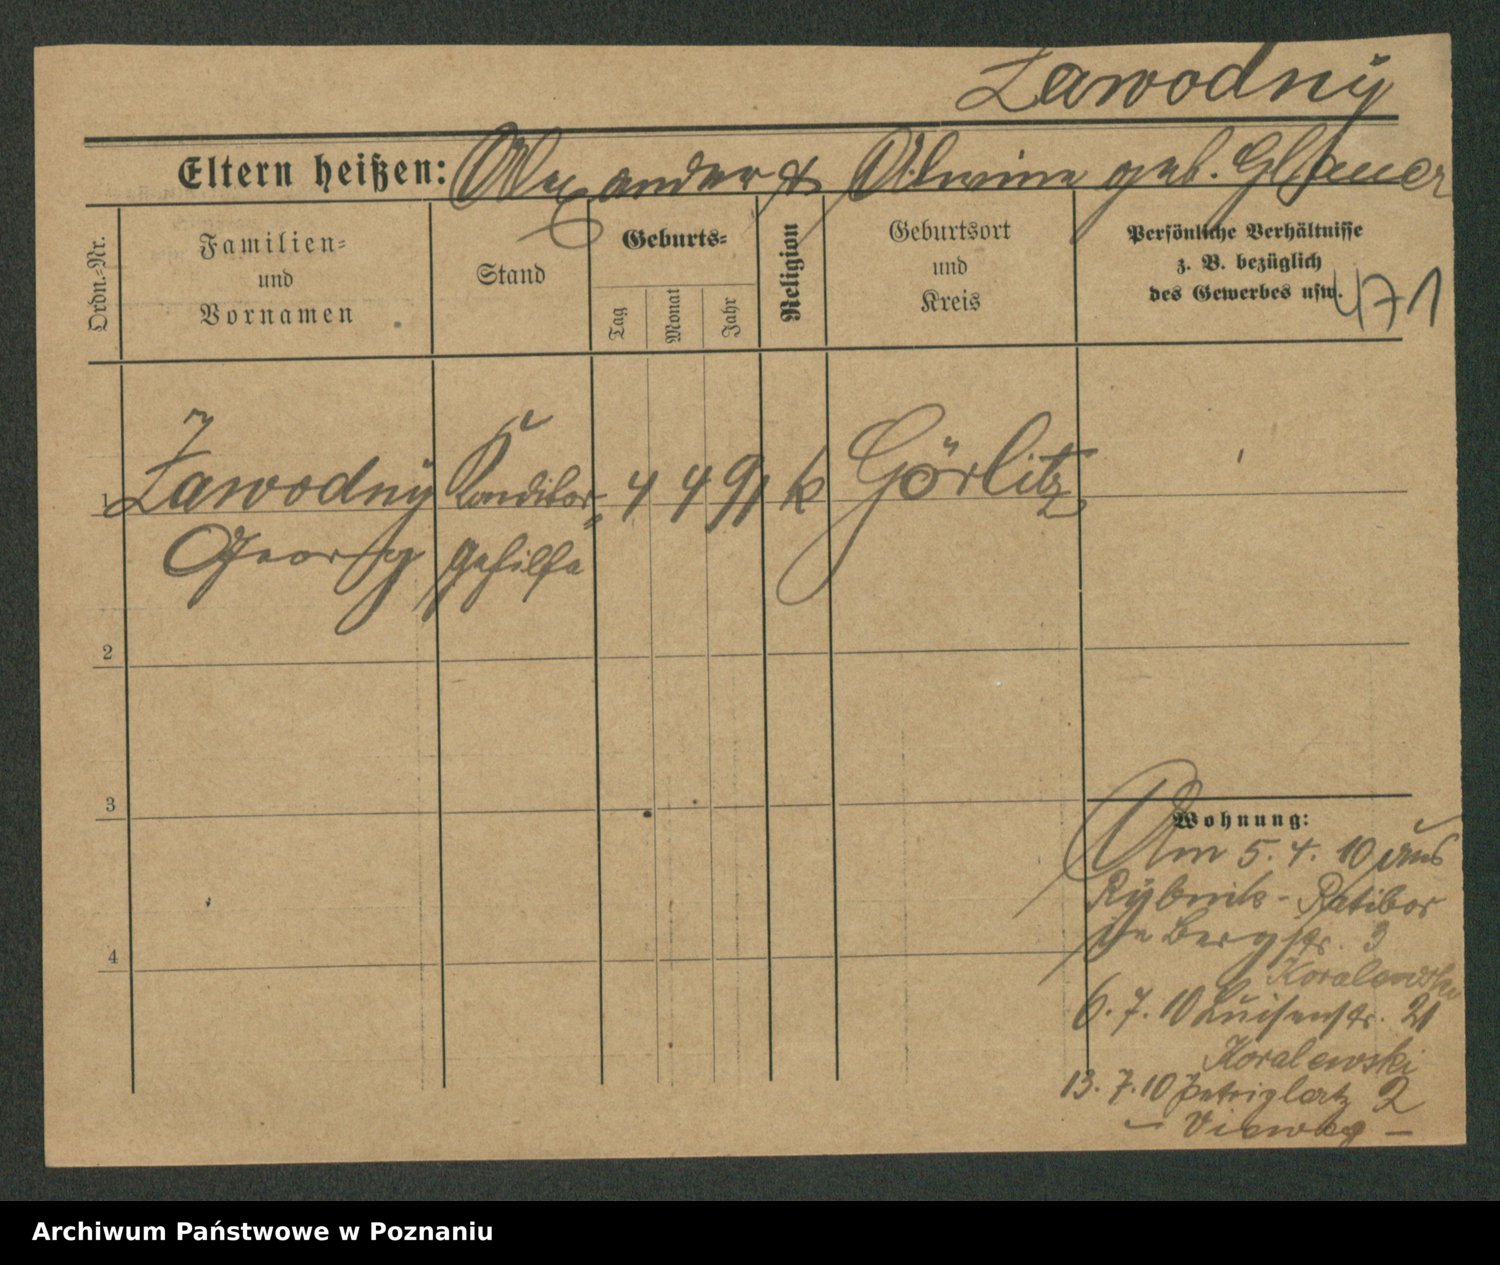 Zawodny
Eltern heißen: Alexander & Alwine geb. Glauer
Ordn.-Nr.
Familien-
und
Vornamen
Stand
Geburts-
Tag
Monat
Jahr
Religion
Geburtsort
und
Kreis
Persönliche Verhältnisse
z. B. bezüglich
des Gewerbes usw.
471
1 Zawodny Konditor- 4 4 91 k Görlitz
Georg Gehilfe
2
3
4
Wohnung:
Am 5. 4. 10 aus
Rybnik - Ratibor
Bergstr. 3
Koralewski
6. 7. 10 Luisenstr. 21
Koralewski
13. 7. 10 Petriplatz 2
– Vieweg –
Archiwum Państwowe w Poznaniu